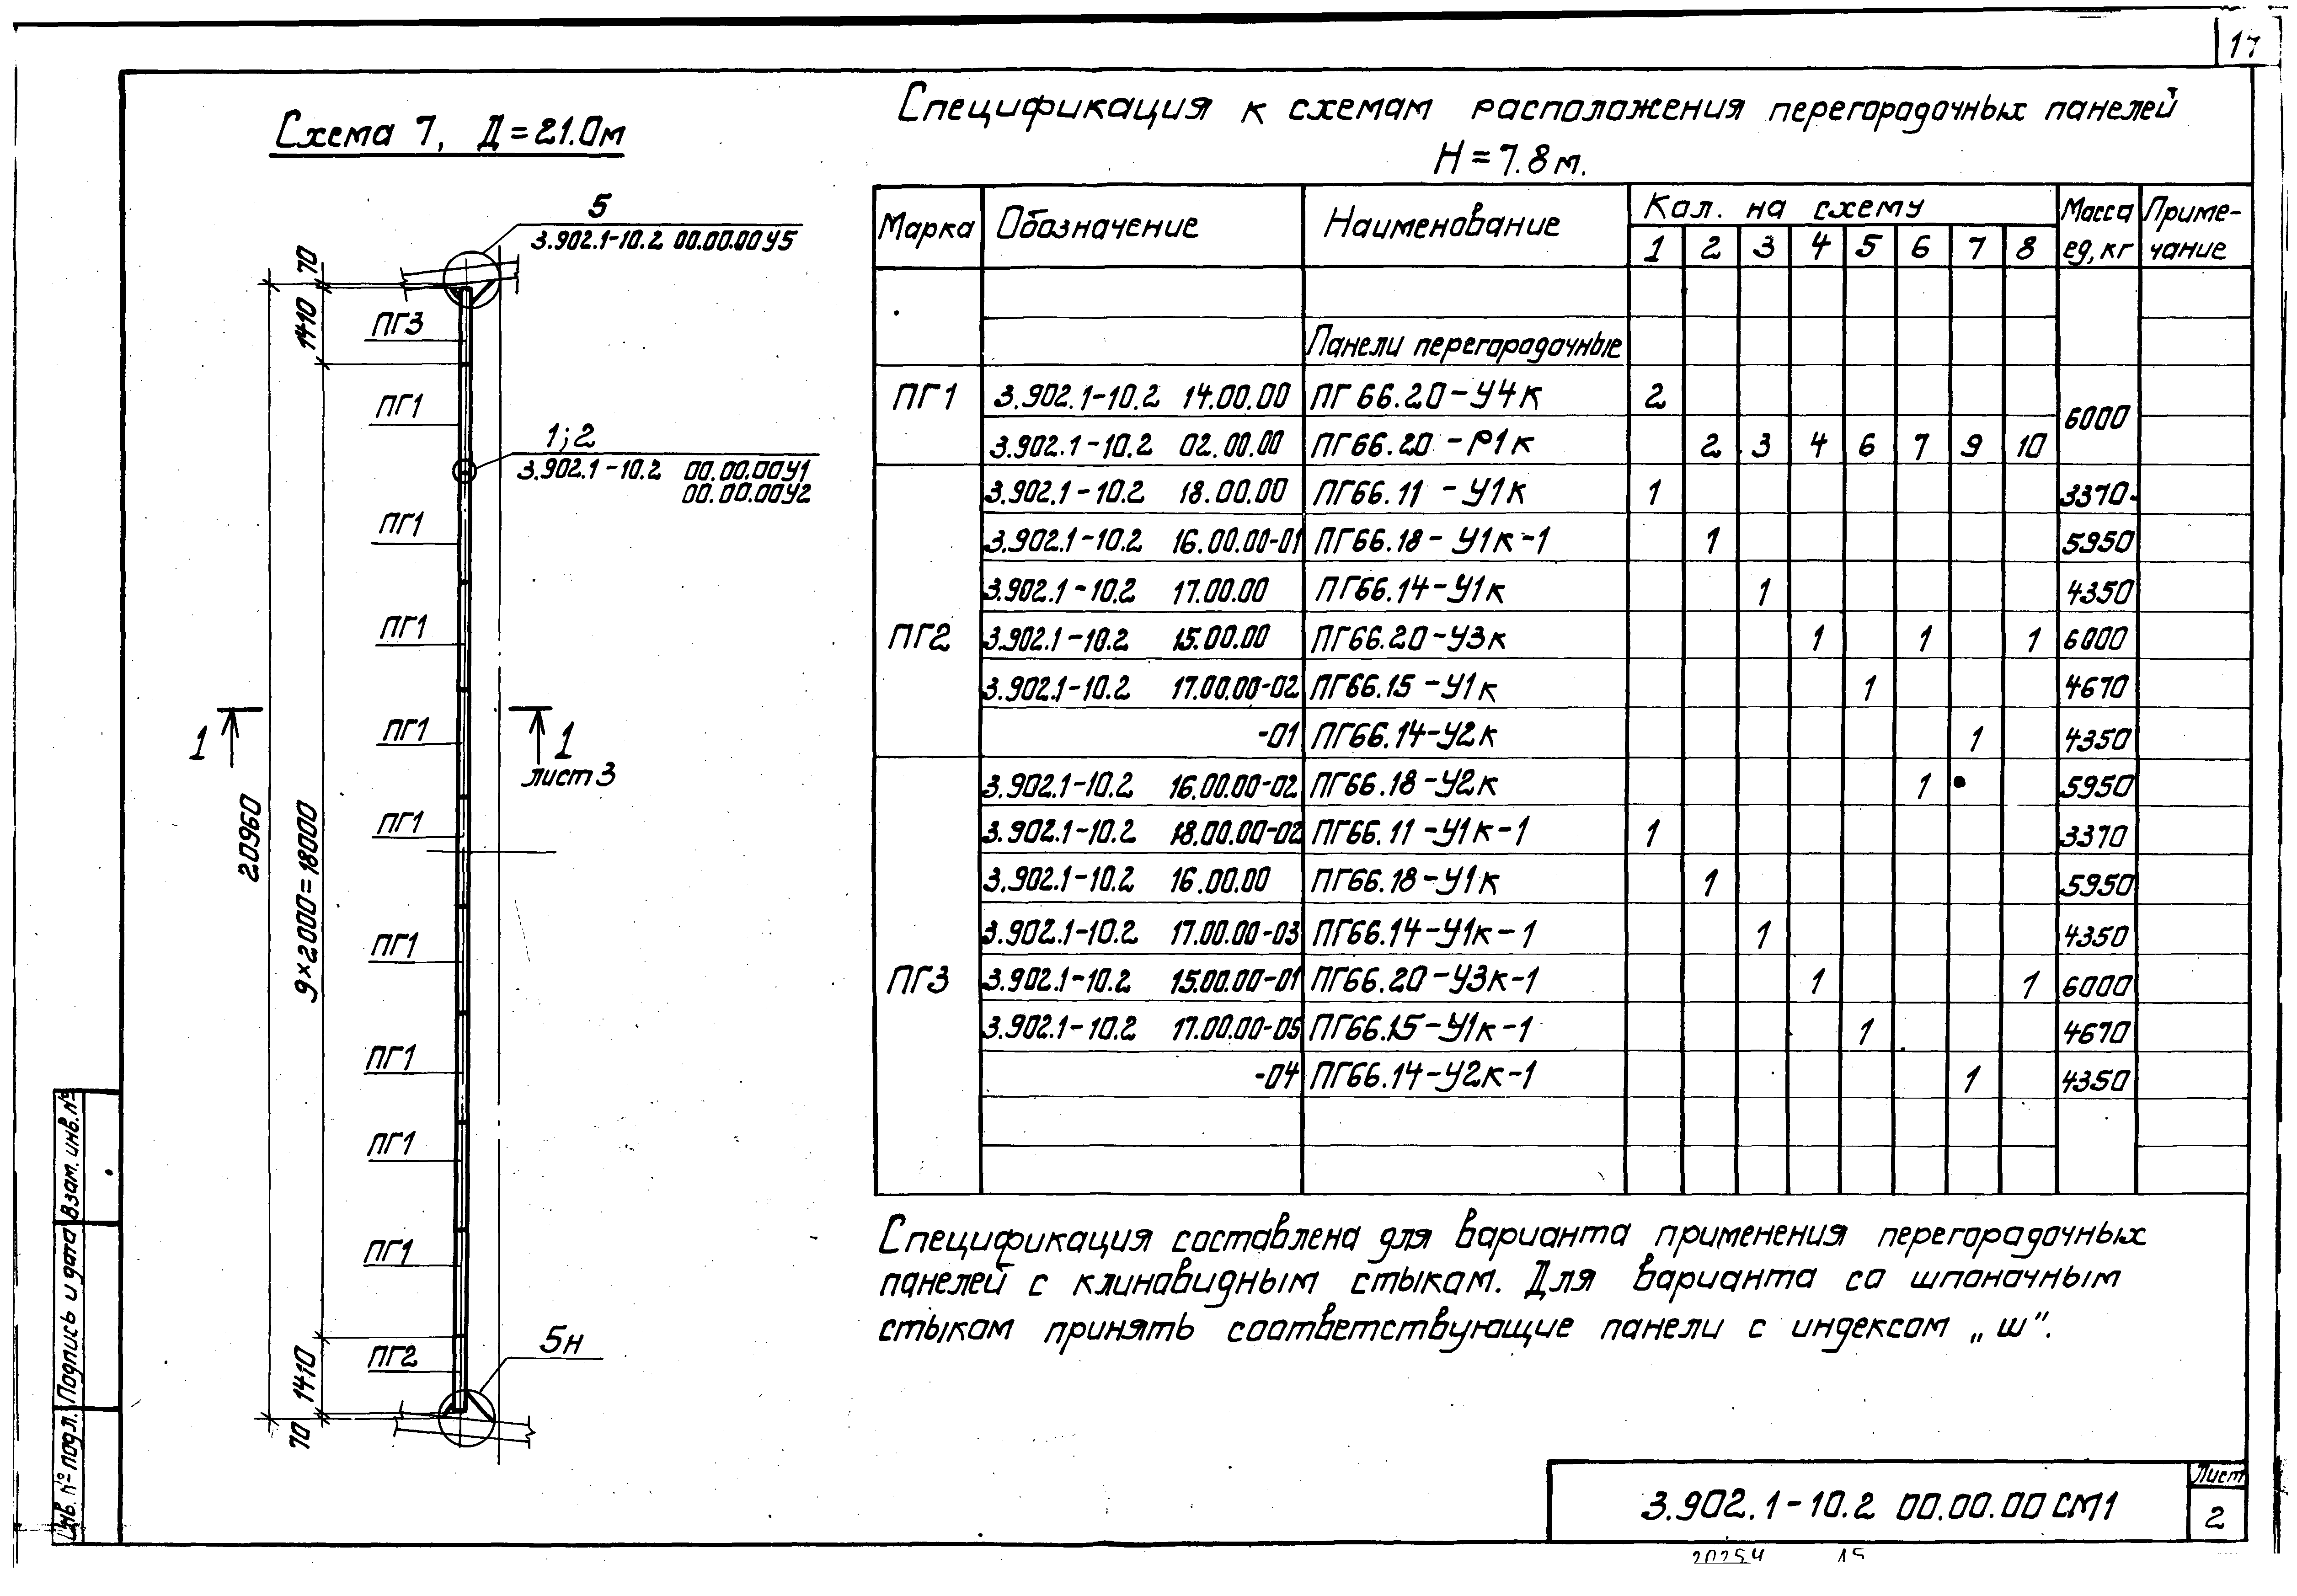 17
Схема 7, Д=21.0м
5
3.902.1-10.2 00.00.00У5
70
1410
ПГ3
ПГ1
1;2
3.902.1-10.2 00.00.00У1
00.00.00У2
ПГ1
ПГ1
1 1
лист 3
ПГ1
ПГ1
20960
9×2000=18000
ПГ1
ПГ1
ПГ1
ПГ1
5н
ПГ2
1410
70
Спецификация к схемам расположения перегородочных панелей
Н=7.8м.
Марка Обозначение Наименование Кол. на схему Масса ед, кг Приме-чание
1 2 3 4 5 6 7 8
Панели перегородочные
ПГ1 3.902.1-10.2 14.00.00 ПГ66.20-У4к 2 6000
3.902.1-10.2 02.00.00 ПГ66.20-Р1к 2 3 4 6 7 9 10
3.902.1-10.2 18.00.00 ПГ66.11-У1к 1 3370
3.902.1-10.2 16.00.00-01 ПГ66.18-У1к-1 1 5950
3.902.1-10.2 17.00.00 ПГ66.14-У1к 1 4350
ПГ2 3.902.1-10.2 15.00.00 ПГ66.20-У3к 1 1 1 6000
3.902.1-10.2 17.00.00-02 ПГ66.15-У1к 1 4670
-01 ПГ66.14-У2к 1 4350
3.902.1-10.2 16.00.00-02 ПГ66.18-У2к 1 5950
3.902.1-10.2 18.00.00-02 ПГ66.11-У1к-1 1 3370
3.902.1-10.2 16.00.00 ПГ66.18-У1к 1 5950
3.902.1-10.2 17.00.00-03 ПГ66.14-У1к-1 1 4350
ПГ3 3.902.1-10.2 15.00.00-01 ПГ66.20-У3к-1 1 1 6000
3.902.1-10.2 17.00.00-05 ПГ66.15-У1к-1 1 4670
-04 ПГ66.14-У2к-1 1 4350
Спецификация составлена для варианта применения перегородочных
панелей с клиновидным стыком. Для варианта со шпоночным
стыком принять соответствующие панели с индексом „ш".
Взам. инв. №
Подпись и дата
Инв. № подл.
3.902.1-10.2 00.00.00 СМ1
Лист
2
20254 15